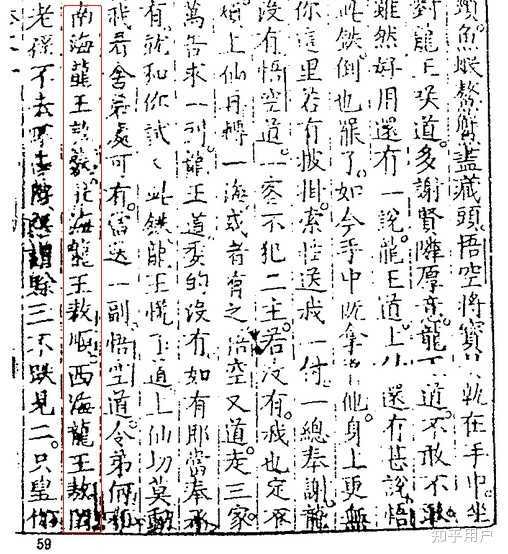 頭魚蝦鰲蟹盡藏頭悟空將寳 執在手中坐
對龍王咲道多謝賢隣厚意龍 道不敢不敢
雖然好用還有一說龍王道上 還有甚說悟
此鉄倒也罷了如今手中既拿 他身上更無
你這里若有披掛索性送我一付一總奉謝龍
没有悟空道一客不犯二主若没有我也定不
煩上仙再轉一海或者有之悟空又道走三家
萬告求一副龍王道委的没有如有即當奉承
有就和你試〻此鉄龍王慌了道上仙切莫動
我看舍弟處可有當送一副悟空道令弟何
南海龍王敖 北海龍王敖順西海龍王敖閏
老孫不去不去 賒三不跌見二只皇你
59
知乎用户